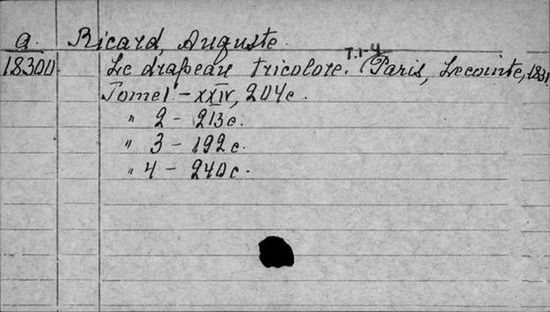 a. Ricard, Auguste.
18300 Le drapeau tricolore. T.1-4 Paris, Lecointe, 1831.
Tome 1 - XXIV, 204 с.
" 2 - 213 с.
" 3 - 192 с.
" 4 - 240 с.